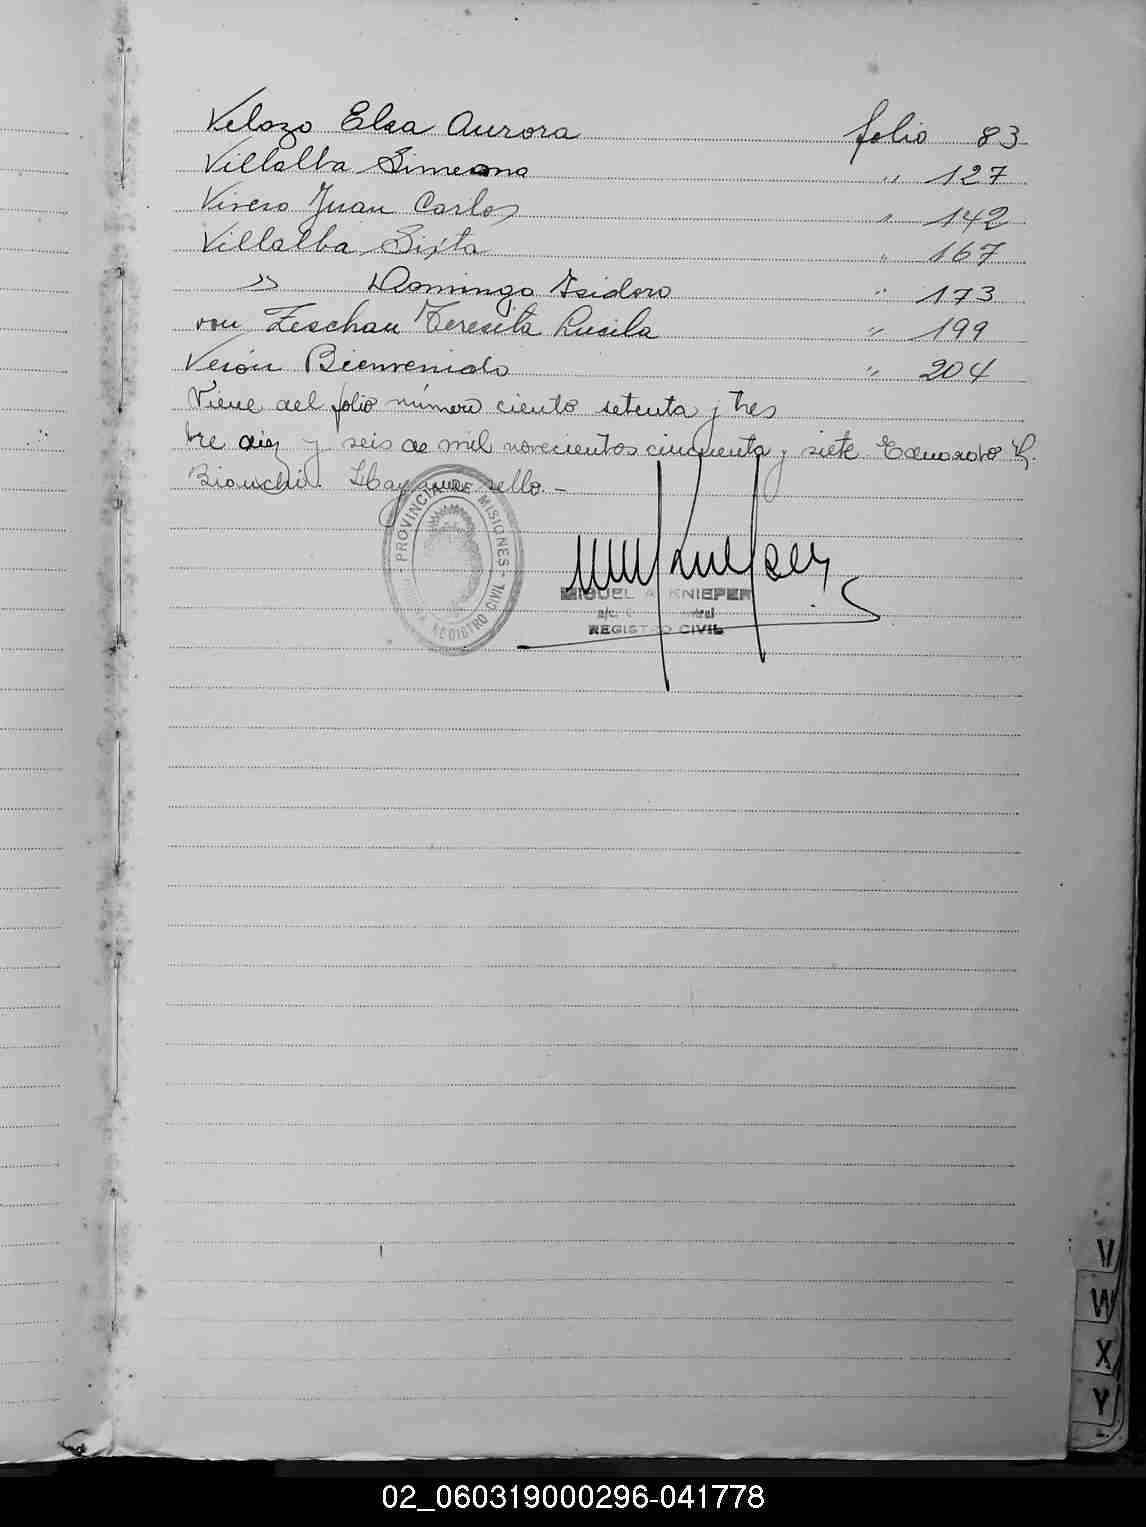 Velozo Elsa Aurora folio 83
Villalba Simeona " 127
Vivero Juan Carlos " 142
Villalba Sixta " 167
" Domingo Isidoro " 173
von Zeschau Teresita Lucila " 199
Verón Bienvenido " 204
Viene del folio número ciento setenta y tres
bre diez y seis de mil novecientos cincuenta y siete
Bianchi. Hay un sello.-
PROVINCIA DE MISIONES - REGISTRO CIVIL
MIGUEL A. KNIEPER
REGISTRO CIVIL
V
W
X
Y
02_060319000296-041778